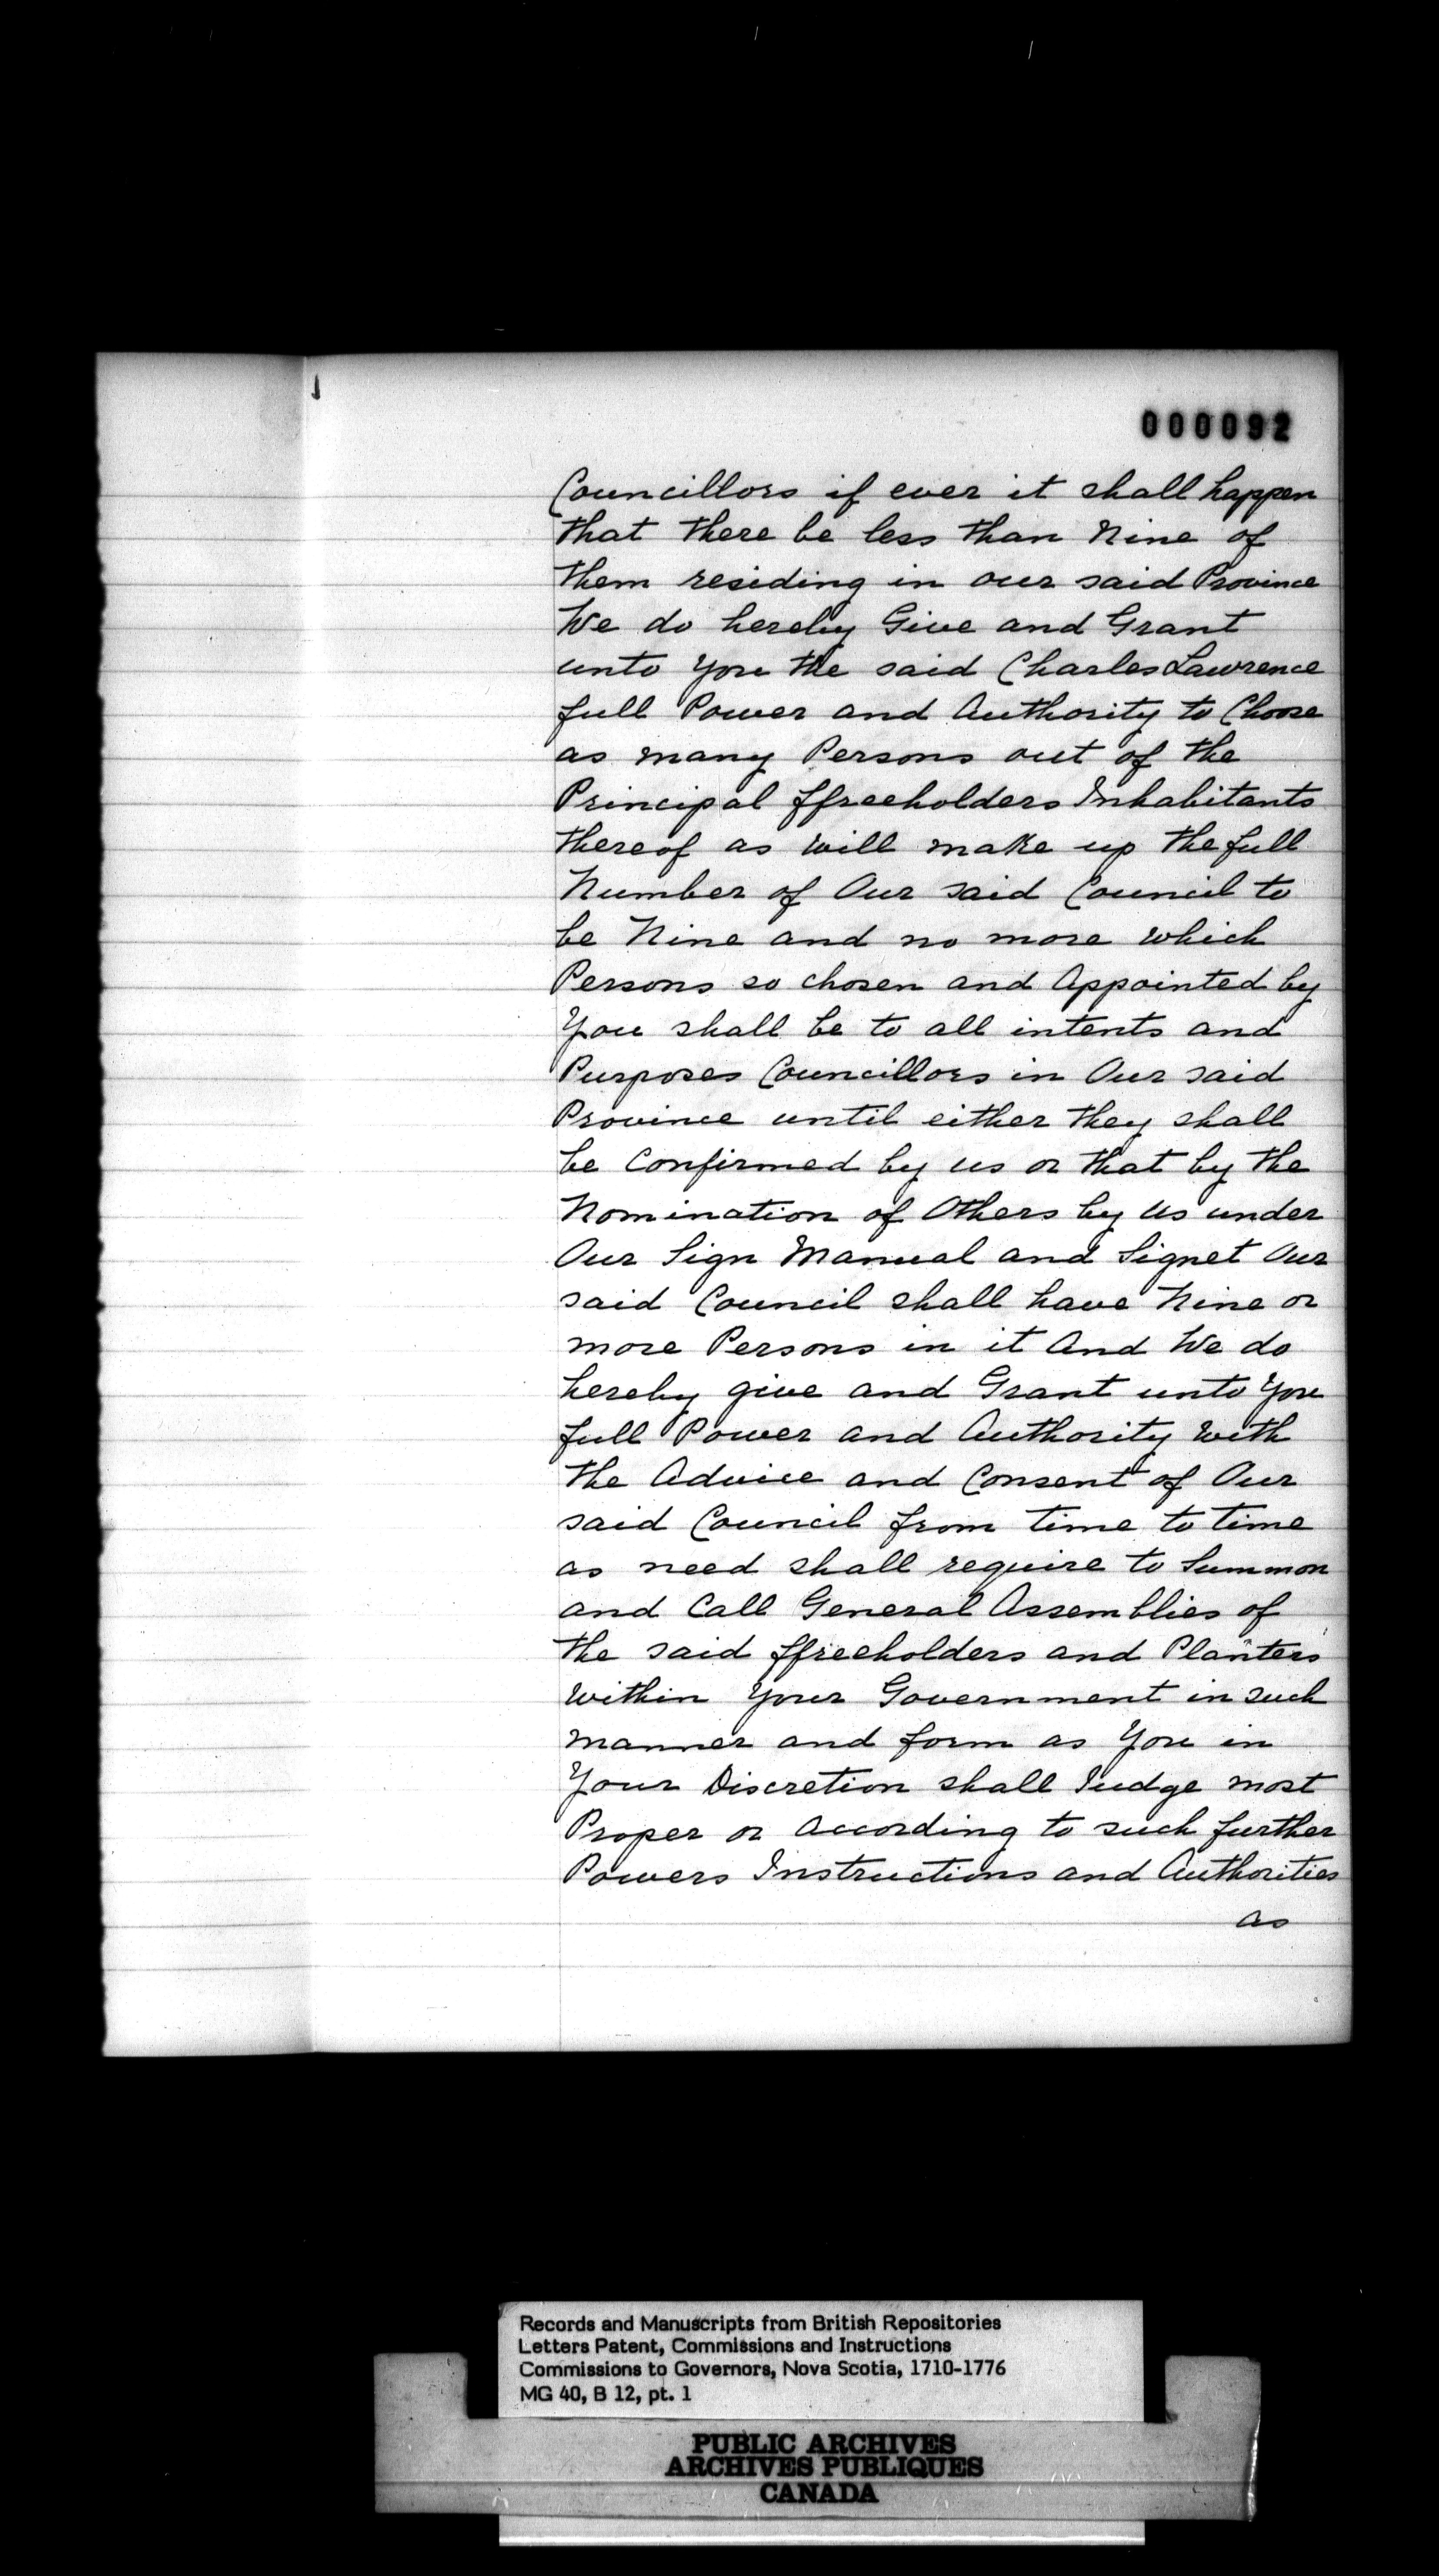 000092
Councillors if ever it shall happen
that there be less than Nine of
them residing in our said Province
We do hereby Give and Grant
unto You the said Charles Lawrence
full Power and Authority to Choose
as many Persons out of the
Principal ffreeholders Inhabitants
thereof as will make up the full
Number of Our said Council to
be Nine and no more which
Persons so chosen and Appointed by
You shall be to all intents and
Purposes Councillors in Our said
Province until either they shall
be Confirmed by us or that by the
Nomination of Others by Us under
Our Sign Manual and Signet Our
said Council shall have Nine or
more Persons in it And We do
hereby give and Grant unto You
full Power and Authority with
the Advice and Consent of Our
said Council from time to time
as need shall require to Summon
and Call General Assemblies of
the said ffreeholders and Planters
within Your Government in such
manner and form as You in
Your Discretion shall Judge most
Proper or According to such further
Powers Instructions and Authorities
as
Records and Manuscripts from British Repositories
Letters Patent, Commissions and Instructions
Commissions to Governors, Nova Scotia, 1710-1776
MG 40, B 12, pt. 1
PUBLIC ARCHIVES
ARCHIVES PUBLIQUES
CANADA